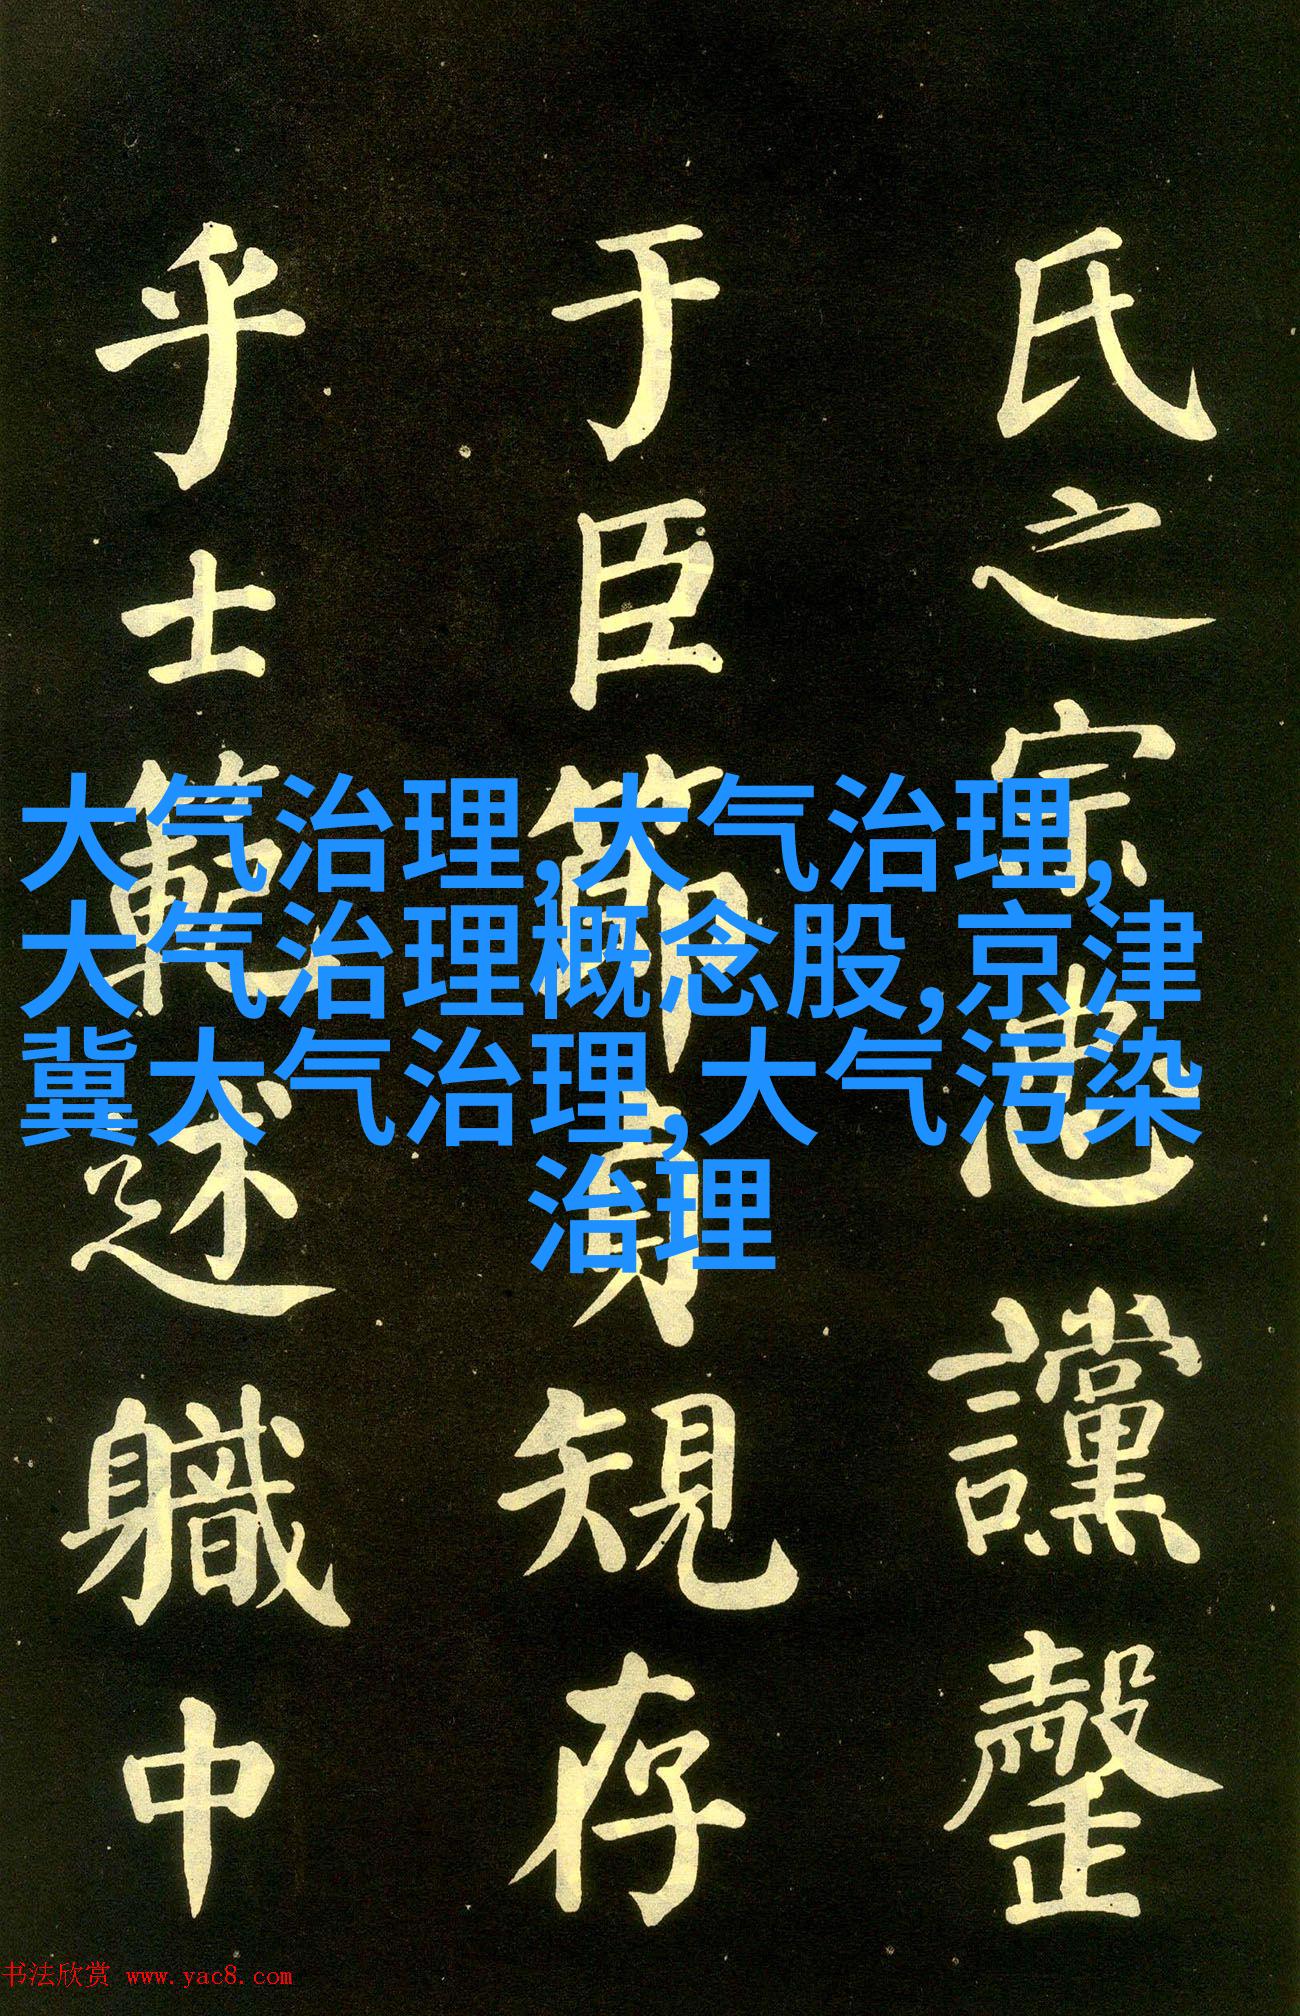 氏之宗忠讜罄
于臣節貞規存
乎士範述職中
大气治理,大气治理,
大气治理概念股,京津
冀大气治理,大气污染
治理
书法欣赏 www.yac8.com